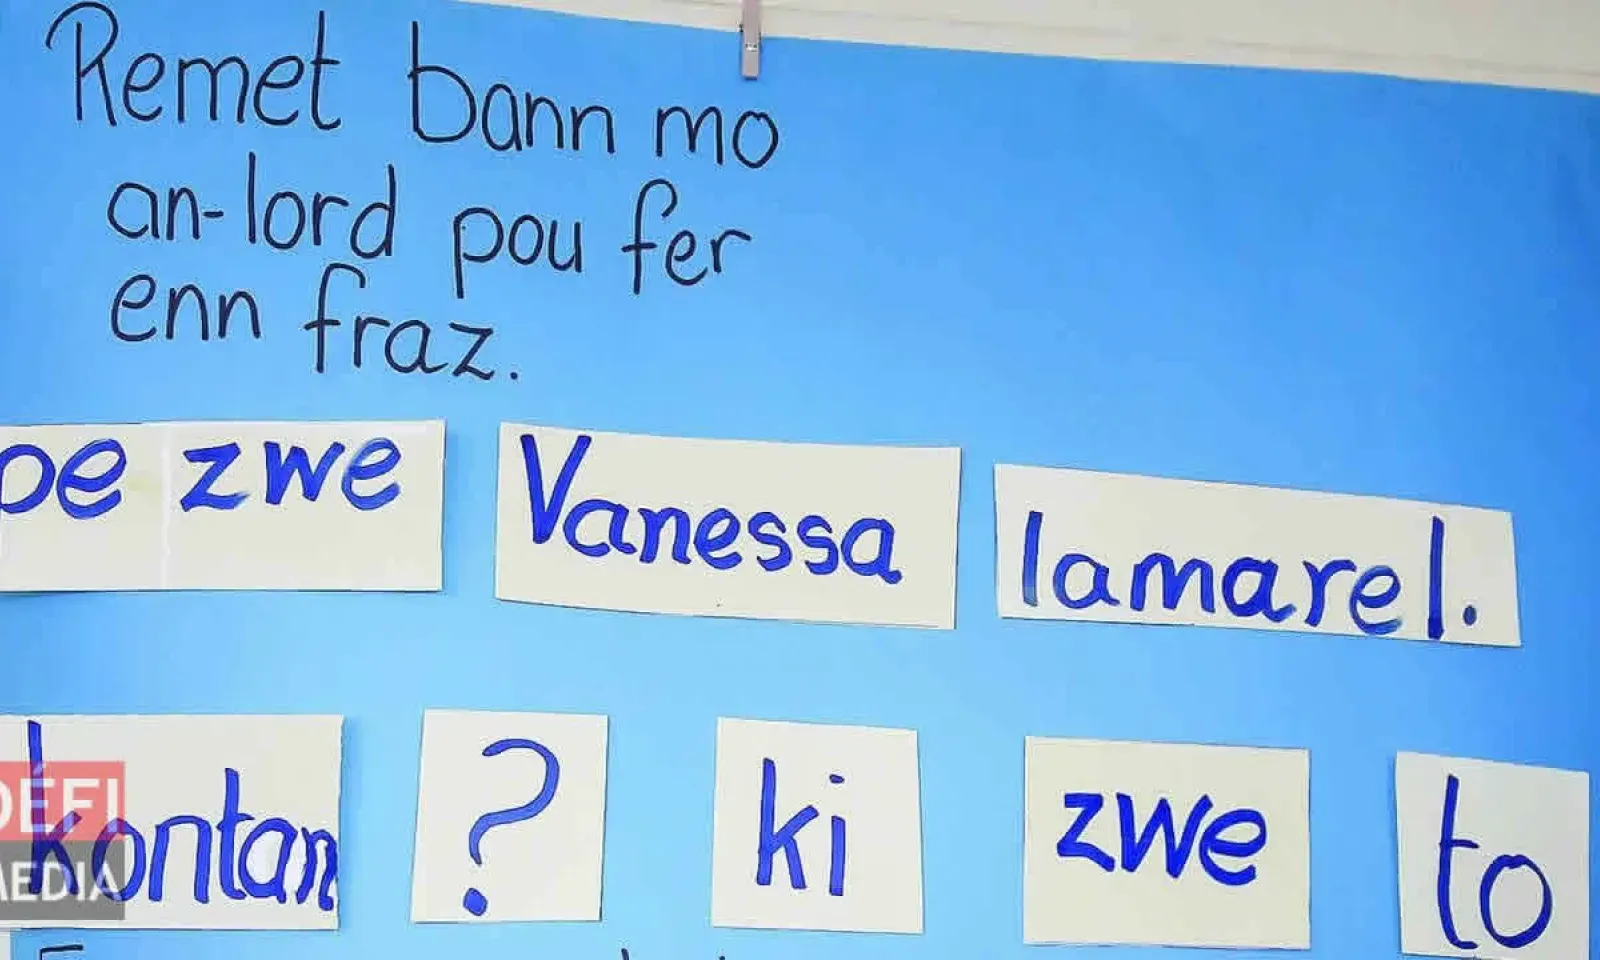 Remet bann mo
an-lord pou fer
enn fraz.
pe zwe Vanessa lamarel.
kontan ? ki zwe to
DÉFI
MEDIA